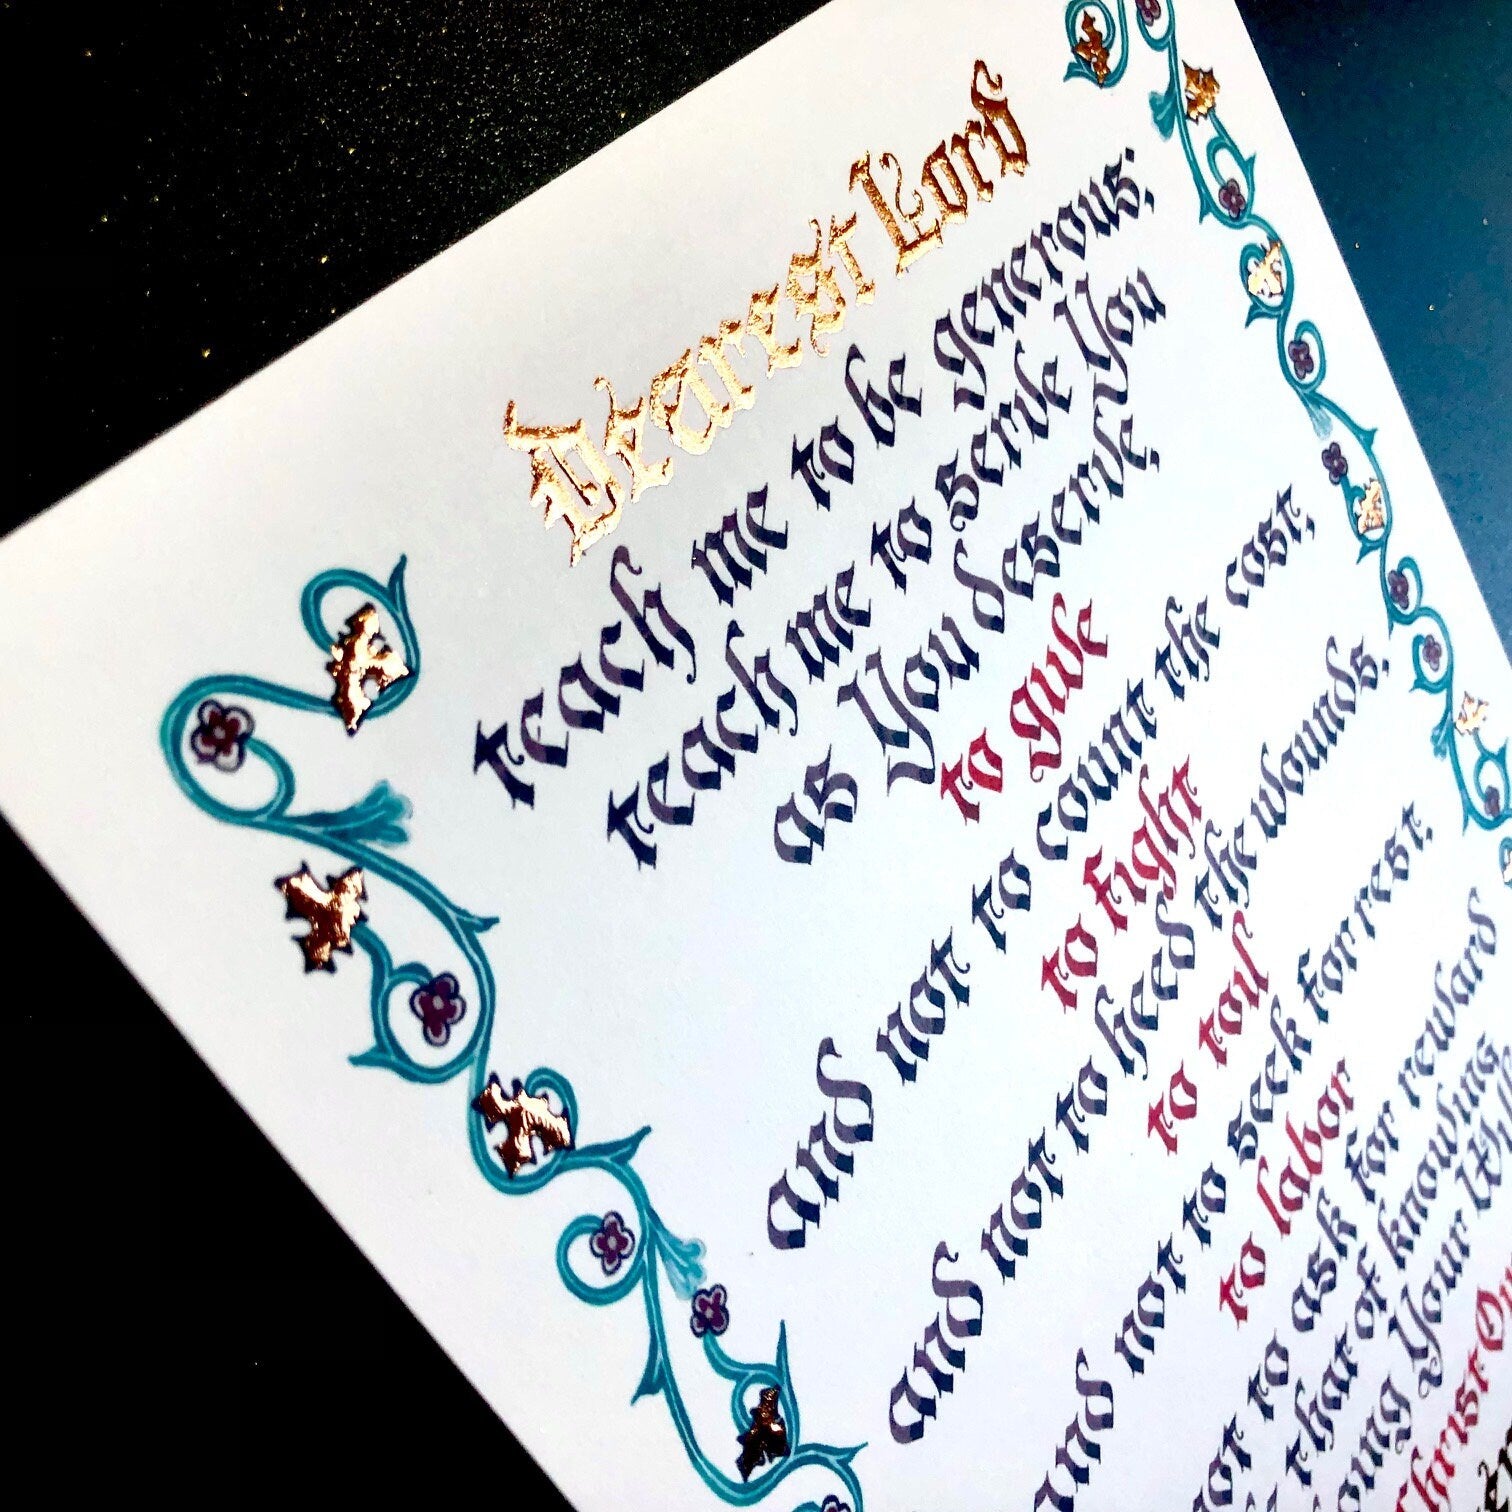 Dearest Lord
teach me to be generous;
teach me to serve You
as You deserve;
to give
and not to count the cost,
to fight
and not to heed the wounds,
to toil
and not to seek for rest,
to labor
not to ask for reward
that of knowing
Your Will
Christ